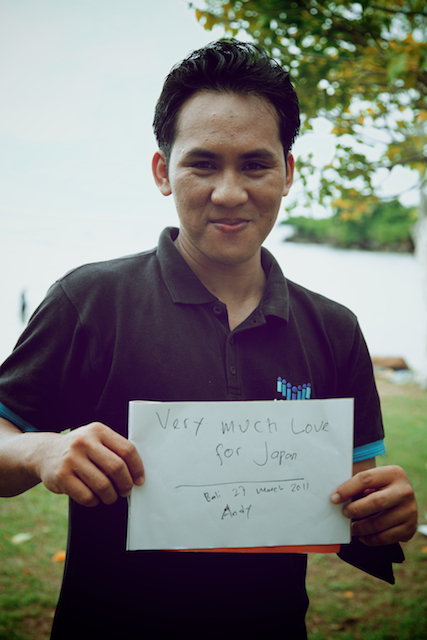 Very much Love
for Japan
Bali 27 March 2011
Andy